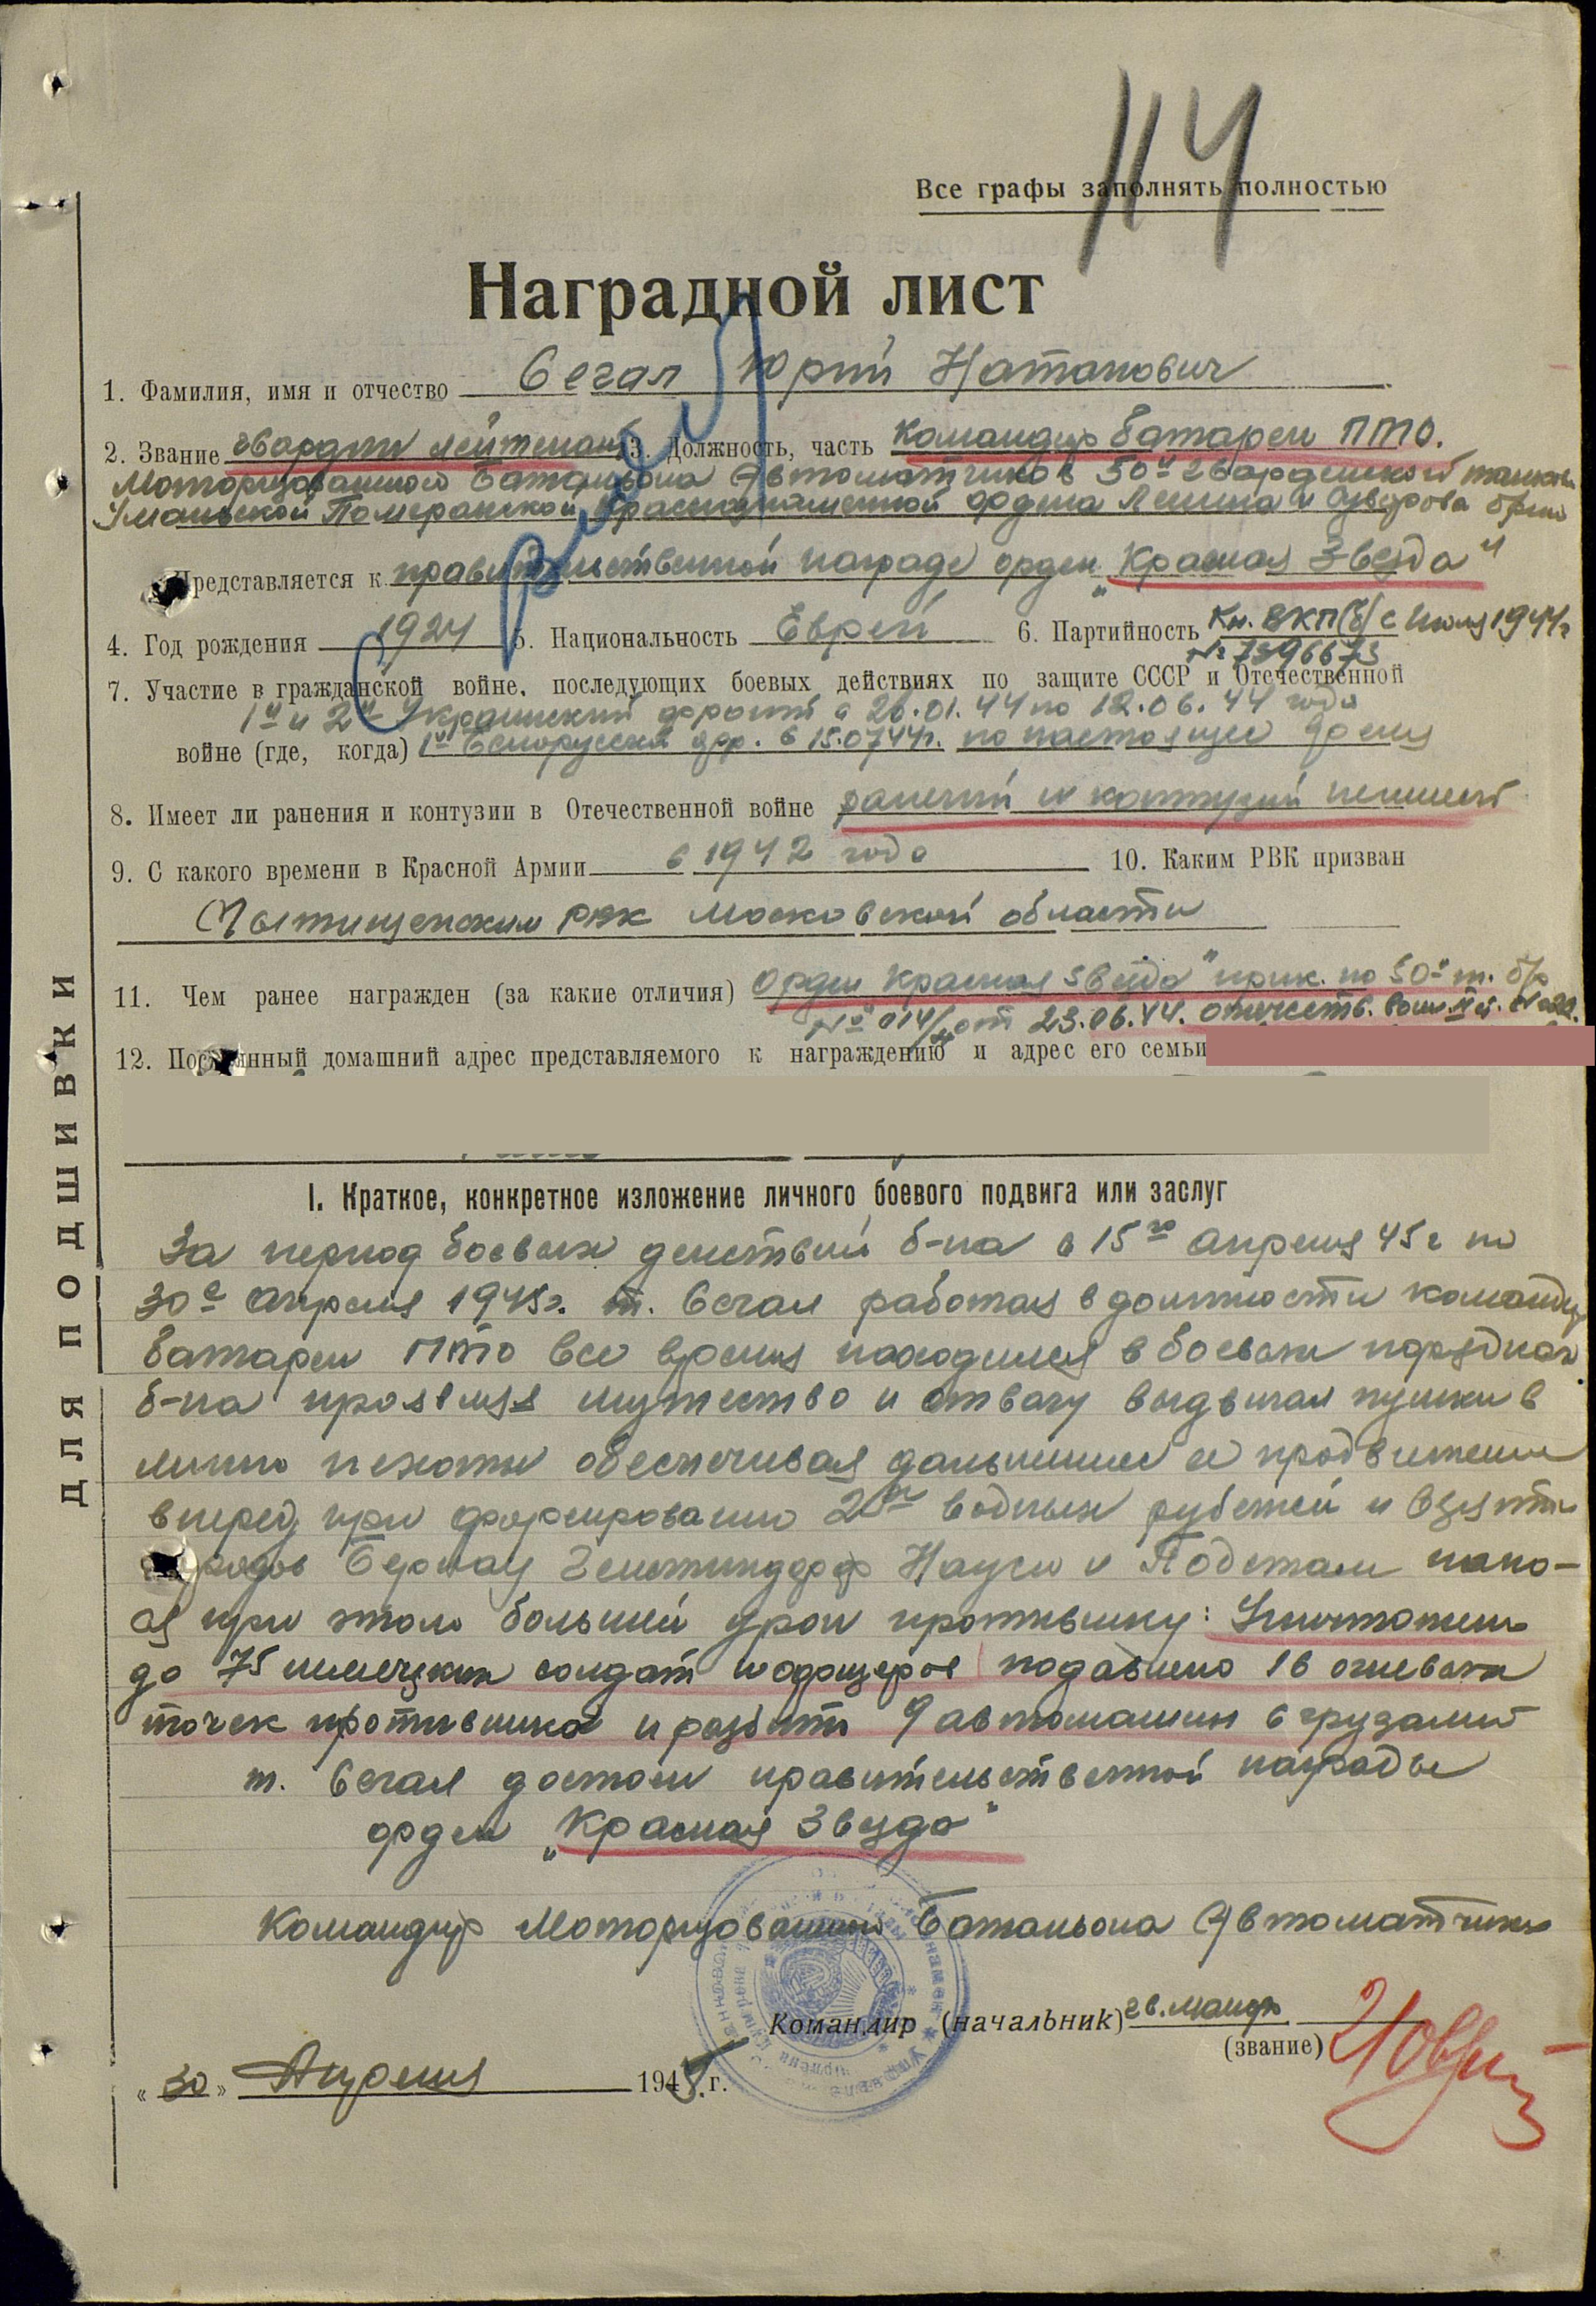 114
Все графы заполнять полностью
Наградной лист
1. Фамилия, имя и отчество Сегал Юрий Натанович
2. Звание гвардии лейтенант 3. Должность, часть Командир батареи ПТО.
Моторизованного Батальона Автоматчиков 50й гвардейской танков
Уманьской Померанской Краснознаменной ордена Ленина и Суворова бриг
Представляется к правительственной награде орден „Красная Звезда"
4. Год рождения 1924 5. Национальность Еврей 6. Партийность Кн. ВКП(б) с Июля 1944г
№ 7396673
7. Участие в гражданской войне, последующих боевых действиях по защите СССР и Отечественной
1й и 2й Украинский фронт с 26.01.44 по 12.06.44 года
войне (где, когда) 1й Белорусский фр. с 15.07.44г. по настоящее время
8. Имеет ли ранения и контузии в Отечественной войне ранений и контузий не имеет
9. С какого времени в Красной Армии с 1942 года 10. Каким РВК призван
Мытищенским РВК Московской области
11. Чем ранее награжден (за какие отличия) Орден „Красная Звезда" прик. по 50й т. бр
№ 014/н от 23.06.44. отечеств. войн. II ст.
12. Постоянный домашний адрес представляемого к награждению и адрес его семьи
I. Краткое, конкретное изложение личного боевого подвига или заслуг
За период боевых действий б-на с 15го апреля 45г по
30е апреля 1945г. т. Сегал работая в должности командир
батареи ПТО все время находился в боевых порядках
б-на проявляя мужество и отвагу выдвигал пушки в
линию пехоты обеспечивая дальнейшее ее продвижение
вперед при форсировании 2х водных рубежей и взятии
городов Бернау Науен и Подстам нано-
ся при этом большой урон противнику: Уничтожено
до 75 немецких солдат и офицеров подавлено 16 огневых
точек противника и разбито 9 автомашин с грузами
т. Сегал достоин правительственной награды
орден „Красная Звезда"
Командир Моторизованного Батальона Автоматчиков
Командир (начальник) гв. майор
(звание)
„30" Апреля 1945 г.
ДЛЯ ПОДШИВКИ